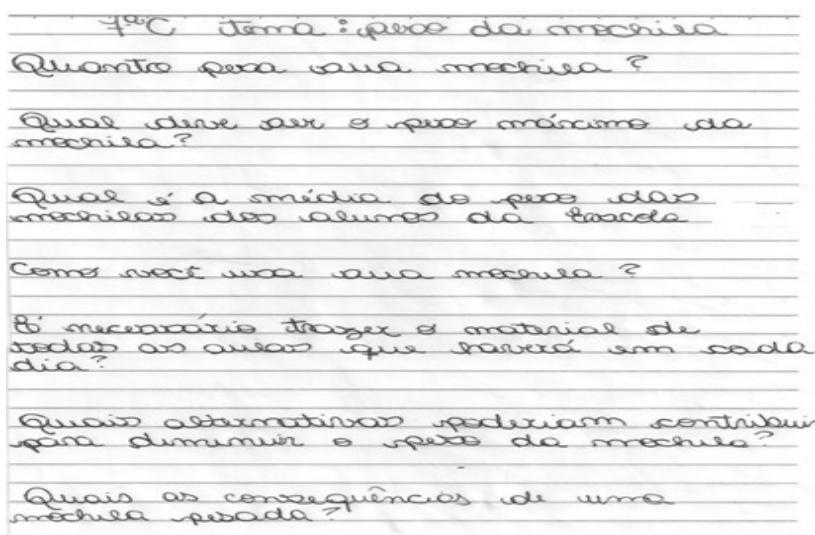 7ªC tema: peso da mochila
Quanto pesa sua mochila?
Qual deve ser o peso máximo da
mochila?
Qual é a média do peso das
mochilas dos alunos da Escola
Como você usa sua mochila?
É necessário trazer o material de
todas as aulas que haverá em cada
dia?
Quais alternativas poderiam contribuir
para diminuir o peso da mochila?
Quais as consequências de uma
mochila pesada?